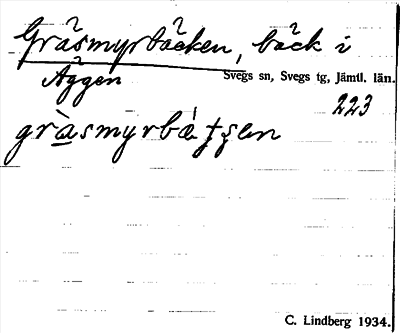 Gräsmyrbäcken, bäck i
Äggen
Svegs sn, Svegs tg, Jämtl. län.
223
gràsmyrbǽţşen
C. Lindberg 1934.